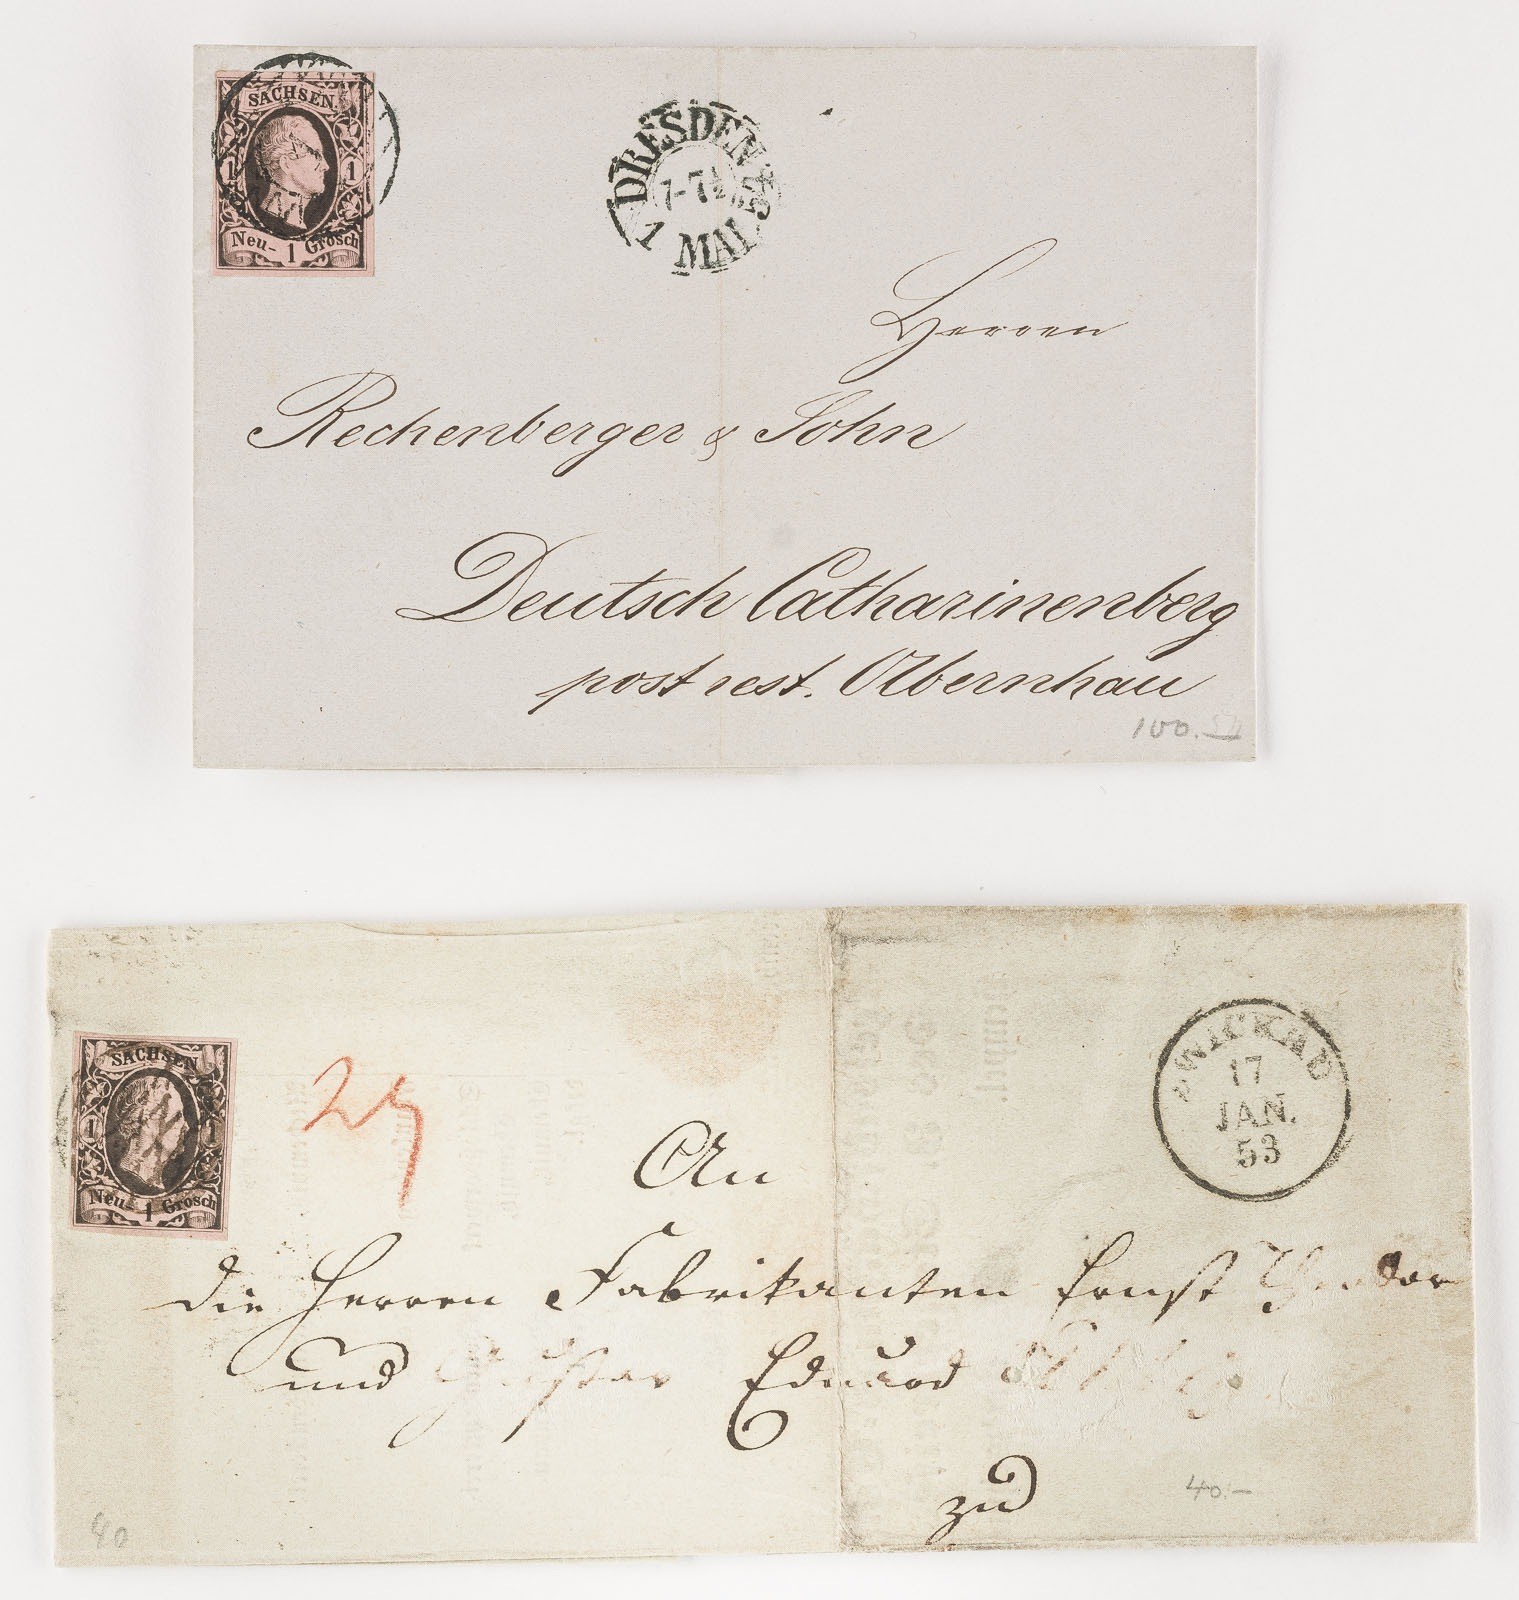 SACHSEN.
1 1
Neu- 1 Grosch
DRESDEN
7-7½
1 MAI 52
Herren
Rechenberger & Sohn
Deutsch Catharinenberg
post rest. Olbernhau
100.
SACHSEN
1 1
Neu- 1 Grosch
ZWICKAU
17
JAN.
53
An
die Herren Fabrikanten Ernst Theodor
und Gustav Eduard
zu
40.-
40